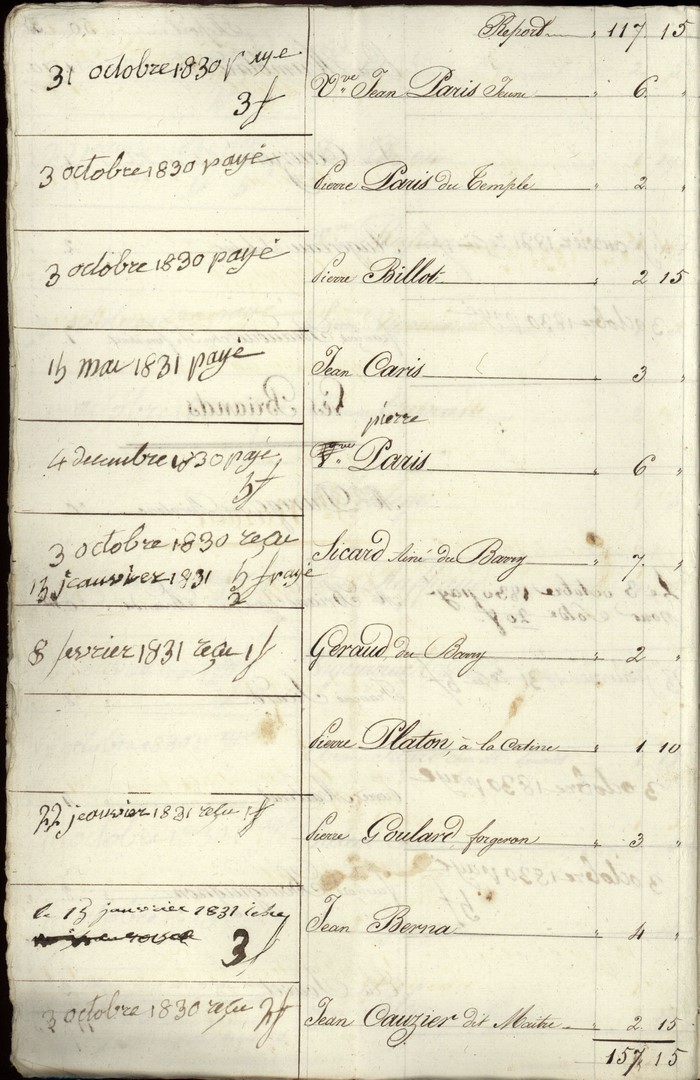 Report " 117 15
31 octobre 1830 paye
Vve Jean Paris Jeune " 6 "
3 f
3 octobre 1830 payé
Pierre Paris du Temple " 2 "
3 octobre 1830 payé
Pierre Billot " 2 15
15 mai 1831 payé
Jean Caris " 3 "
pierre
4 decembre 1830 payé
Paris " 6 "
5 f
3 octobre 1830 reçu
Sicard ainé du Barry " 7 "
15 jeanvier 1831 5 f payé
2
8 fevrier 1831 reçu 1 f
Geraud du Barry " 2 "
Pierre Platon, à la Catine " 1 10
22 jeanvier 1831 reçu 1 f
Pierre Goulard, forgeron " 3 "
le 15 janvier 1831
Jean Berna " 4 "
3 f
3 octobre 1830 reçu 2 f
Jean Cauzier dit Maitre " 2 15
157 15